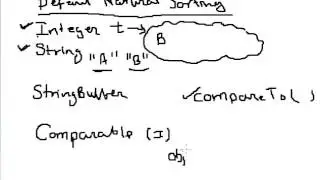 Default Natural Sorting
✓ Integer t → B
✓ String "A" "B"
StringBuffer ✓ compareTo( )
Comparable (I)
obj